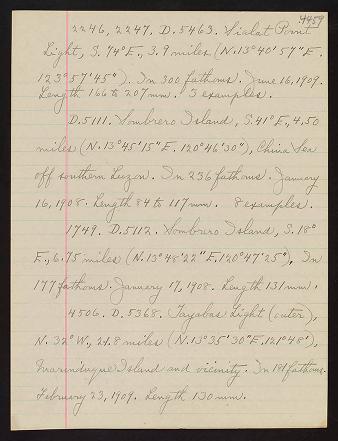 4459
2246, 2247. D. 5463. Sialat Point
Light, S. 74° E., 3.9 miles (N. 13° 40' 57" E.
123° 57' 45"). In 300 fathoms. June 16, 1909.
Length 166 to 207 mm. 3 examples.
D. 5111. Sombrero Island, S. 41° E., 4.50
miles (N. 13° 45' 15" E. 120° 46' 30"), China Sea
off southern Luzon. In 236 fathoms. January
16, 1908. Length 84 to 117 mm. 8 examples.
1749. D. 5112. Sombrero Island, S. 18°
E., 6.75 miles (N. 13° 48' 22" E. 120° 47' 25"). In
177 fathoms. January 17, 1908. Length 131 mm.
4506. D. 5368. Tayabas Light (outer),
N. 32° W., 21.8 miles (N. 13° 35' 30" E. 121° 48'),
Marinduque Island and vicinity. In 181 fathoms.
February 23, 1909. Length 130 mm.